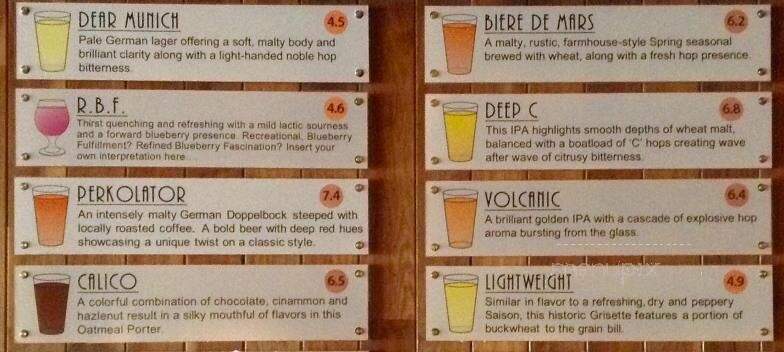 DEAR MUNICH 4.5
Pale German lager offering a soft, malty body and
brilliant clarity along with a light-handed noble hop
bitterness.
R.B.F. 4.6
Thirst quenching and refreshing with a mild lactic sourness
and a forward blueberry presence. Recreational, Blueberry
Fulfillment? Refined Blueberry Fascination? Insert your
own interpretation here...
PERKOLATOR 7.4
An intensely malty German Doppelbock steeped with
locally roasted coffee. A bold beer with deep red hues
showcasing a unique twist on a classic style.
CALICO 6.5
A colorful combination of chocolate, cinammon and
hazlenut result in a silky mouthful of flavors in this
Oatmeal Porter.
BIERE DE MARS 6.2
A malty, rustic, farmhouse-style Spring seasonal
brewed with wheat, along with a fresh hop presence.
DEEP C 6.8
This IPA highlights smooth depths of wheat malt,
balanced with a boatload of 'C' hops creating wave
after wave of citrusy bitterness.
VOLCANIC 6.4
A brilliant golden IPA with a cascade of explosive hop
aroma bursting from the glass.
menupix
LIGHTWEIGHT 4.9
Similar in flavor to a refreshing, dry and peppery
Saison, this historic Grisette features a portion of
buckwheat to the grain bill.